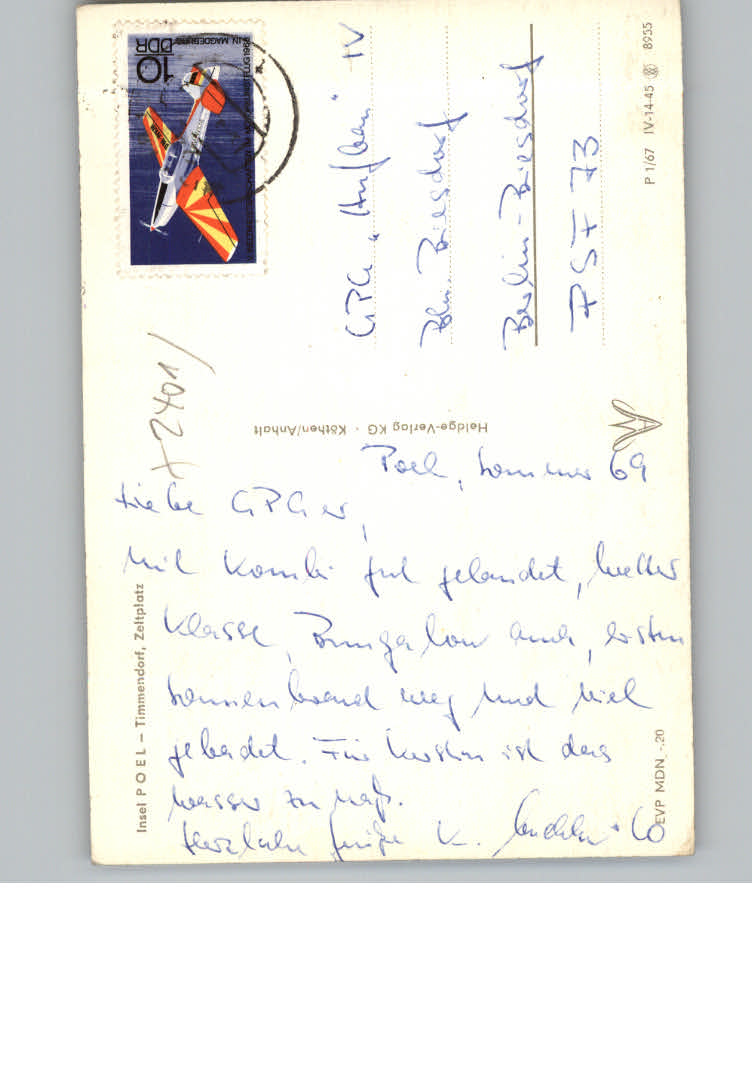 Poel, Sommer 69
Liebe GPGer,
Mit Kombi gut gelandet, Wetter
Klasse, Bungalow auch, ersten
Sonnenbrand weg und viel
gebadet. Für Kerstin ist das
Wasser zu naß.
Herzliche Grüße K. + Co
GPG „ IV
Bln. Biesdorf
Berlin-Biesdorf
PSF 73
Insel POEL – Timmendorf, Zeltplatz
Heldge-Verlag KG · Köthen/Anhalt
EVP MDN -.20
P 1/67 IV-14-45 8955
10
DDR
+2401/